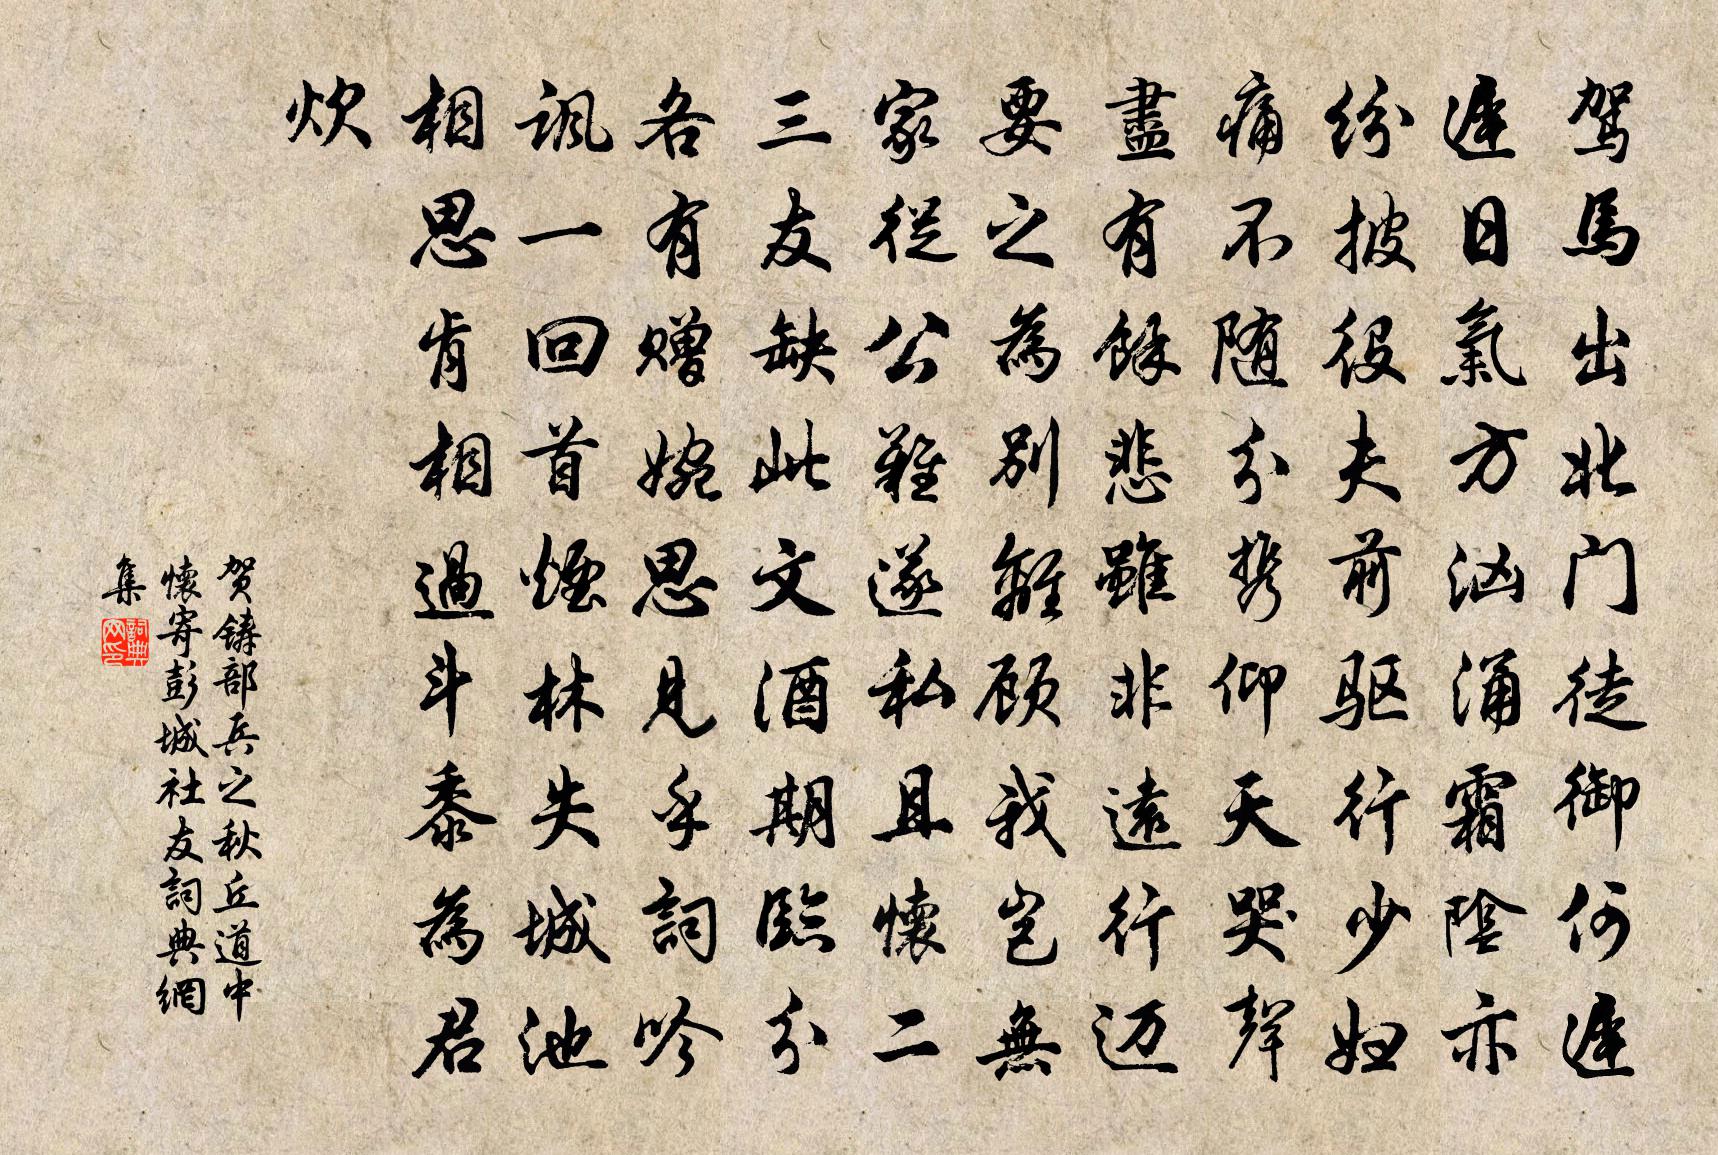 駕馬出北门徒御何遲
遲日氣方汹涌霜陰亦
紛披役夫前驱行少妇
痛不随分携仰天哭聲
盡有餘悲雖非遠行迈
要之為别離顾我豈無
家從公難遂私且懷二
三友缺此文酒期臨分
各有赠婉思见乎詞吟
諷一回首煙林失城池
相思肯相過斗黍為君
炊
贺鑄部兵之秋丘道中
懷寄彭城社友詞典網
集
詞典网印